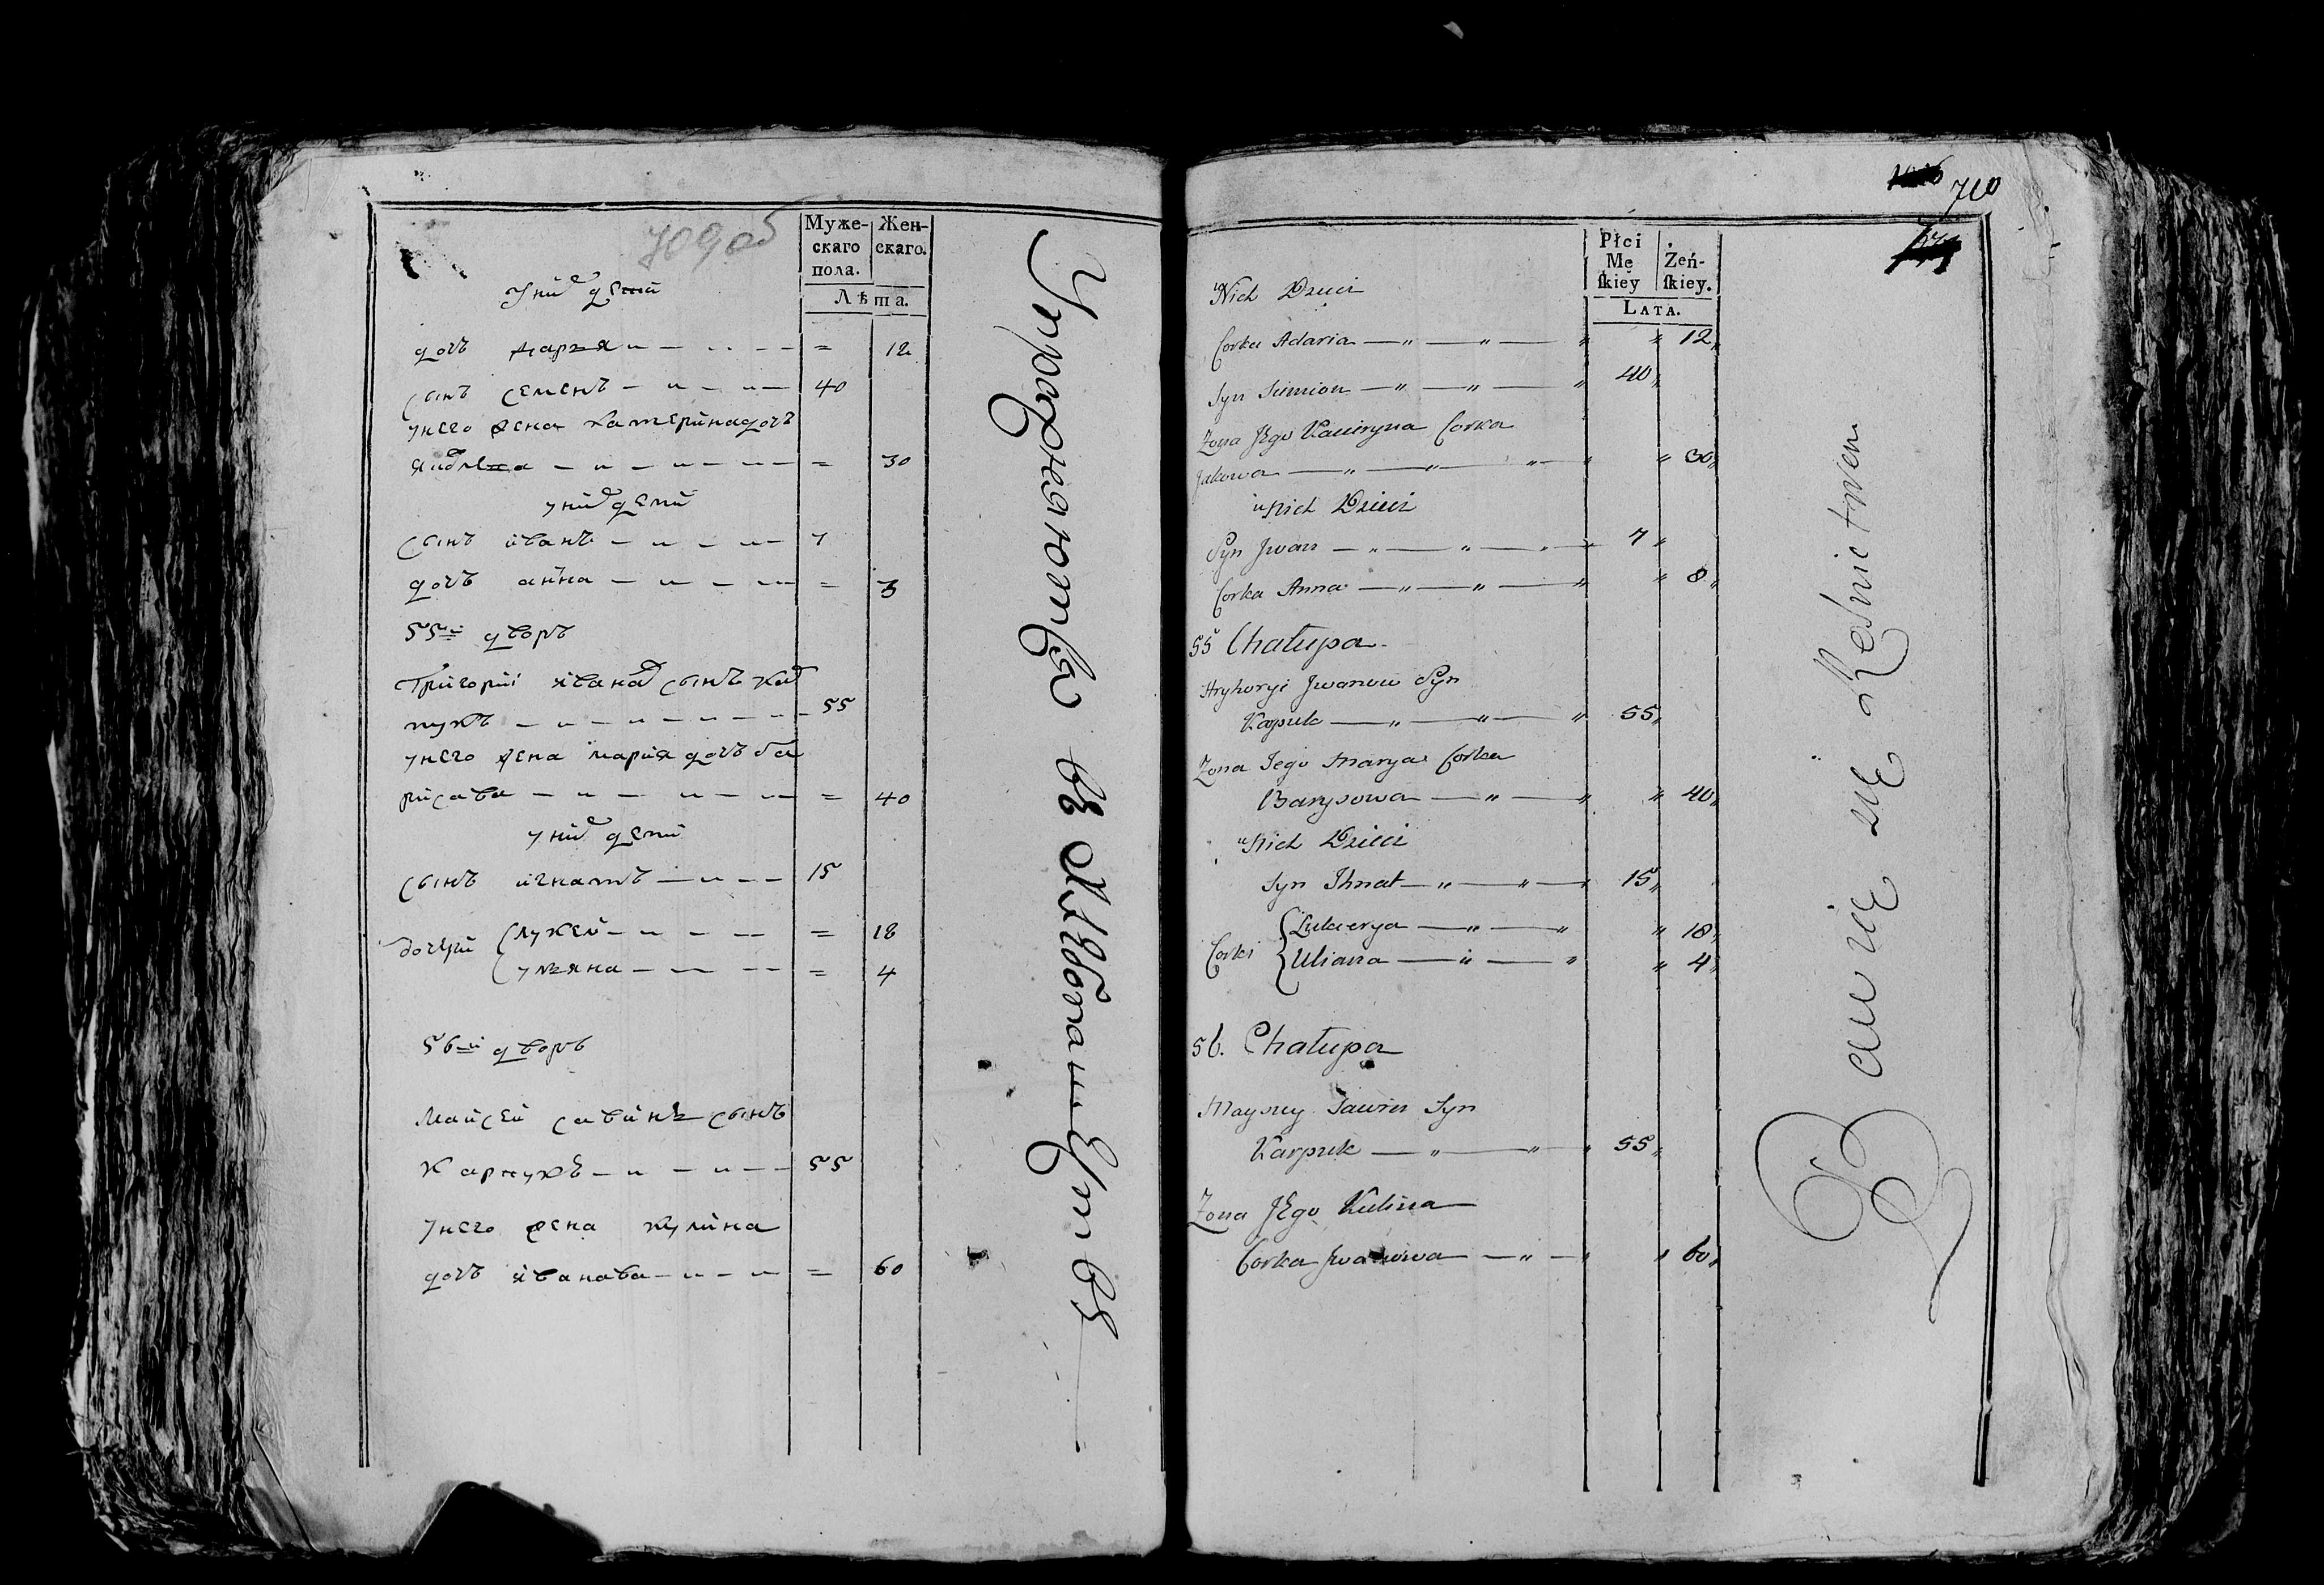 709 об
Муже-
скаго
пола.
Жен-
скаго.
Лѣта.
у них дети
дочъ дарья 12
сынъ семенъ 40
у него жена катерина дочъ
30
у них дети
сынъ иванъ 7
дочъ анна 3
55й дворъ
Григорий иванов сынъ кар
пукъ 55
у него жена мария дочъ ба
рисава 40
у них дети
сынъ игнатъ 15
дочери лукея 18
ульяна 4
56й дворъ
Майсей савинъ сынъ
карпукъ 55
у него жена кулина
дочъ иванава 60
Упражняютца въ Хлебопашестве
710
Płci
Mę
ſkiey
Żeń-
ſkiey.
LATA.
u Nich Dzieci
Corka Adaria 12
Syn Simion 40
Zona Jego Kaciryna Corka
Jakowa 30
u Nich Dzieci
Syn Jwan 7
Corka Anna 8
55 Chałupa
Hryhoryi Jwanow Syn
Kapuk 55
Zona Jego Marya Corka
Barysowa 40
u Nich Dzieci
Syn Ihnat 15
Corki Lukierya 18
Uliana 4
56. Chałupa
Mayzey Sawin Syn
Karpuk 55
Zona Jego Kulina
Corka Jwanowa 60
Bawię się Rolnictwem